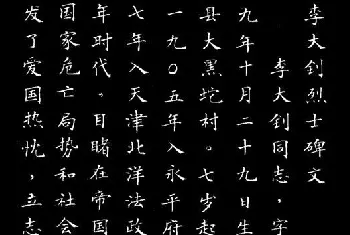 李大钊烈士碑文
李大钊同志，字
九年十月二十九日生
县大黑坨村。七岁起
一九〇五年入永平府
七年入天津北洋法政
年时代。目睹在帝国
国家危亡局势和社会
发了爱国热忱，立志